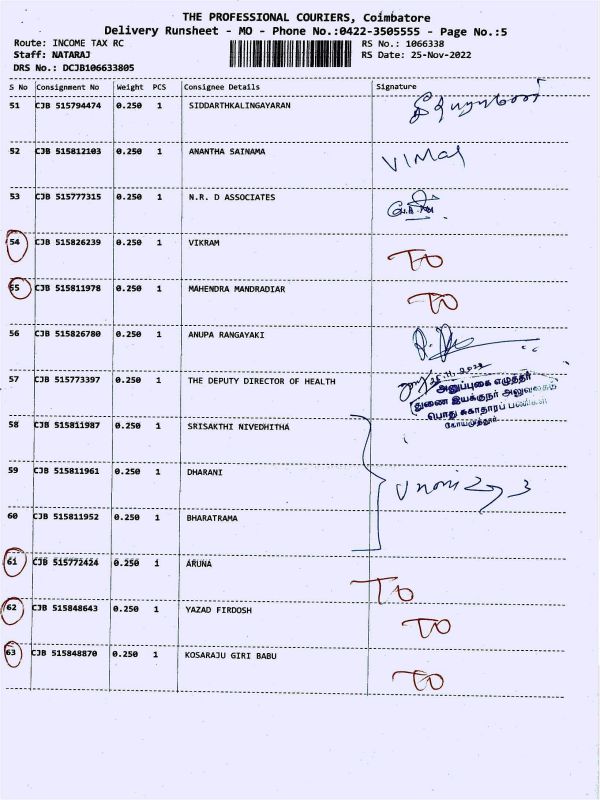 THE PROFESSIONAL COURIERS, Coimbatore
Delivery Runsheet - MO - Phone No.:0422-3505555 - Page No.:5
Route: INCOME TAX RC RS No.: 1066338
Staff: NATARAJ RS Date: 25-Nov-2022
DRS No.: DCJB106633805
S No Consignment No Weight PCS Consignee Details Signature
51 CJB 515794474 0.250 1 SIDDARTHKALINGAYARAN
52 CJB 515812103 0.250 1 ANANTHA SAINAMA VIMAL
53 CJB 515777315 0.250 1 N.R. D ASSOCIATES
54 CJB 515826239 0.250 1 VIKRAM TO
55 CJB 515811978 0.250 1 MAHENDRA MANDRADIAR TO
56 CJB 515826780 0.250 1 ANUPA RANGAYAKI
57 CJB 515773397 0.250 1 THE DEPUTY DIRECTOR OF HEALTH 25.11.2022
அனுப்புகை எழுத்தர்
துணை இயக்குநர் அலுவலகம்
பொது சுகாதாரப் பணிகள்
கோயமுத்தூர்
58 CJB 515811987 0.250 1 SRISAKTHI NIVEDHITHA
59 CJB 515811961 0.250 1 DHARANI
60 CJB 515811952 0.250 1 BHARATRAMA
61 CJB 515772424 0.250 1 ARUNA TO
62 CJB 515848643 0.250 1 YAZAD FIRDOSH TO
63 CJB 515848870 0.250 1 KOSARAJU GIRI BABU TO